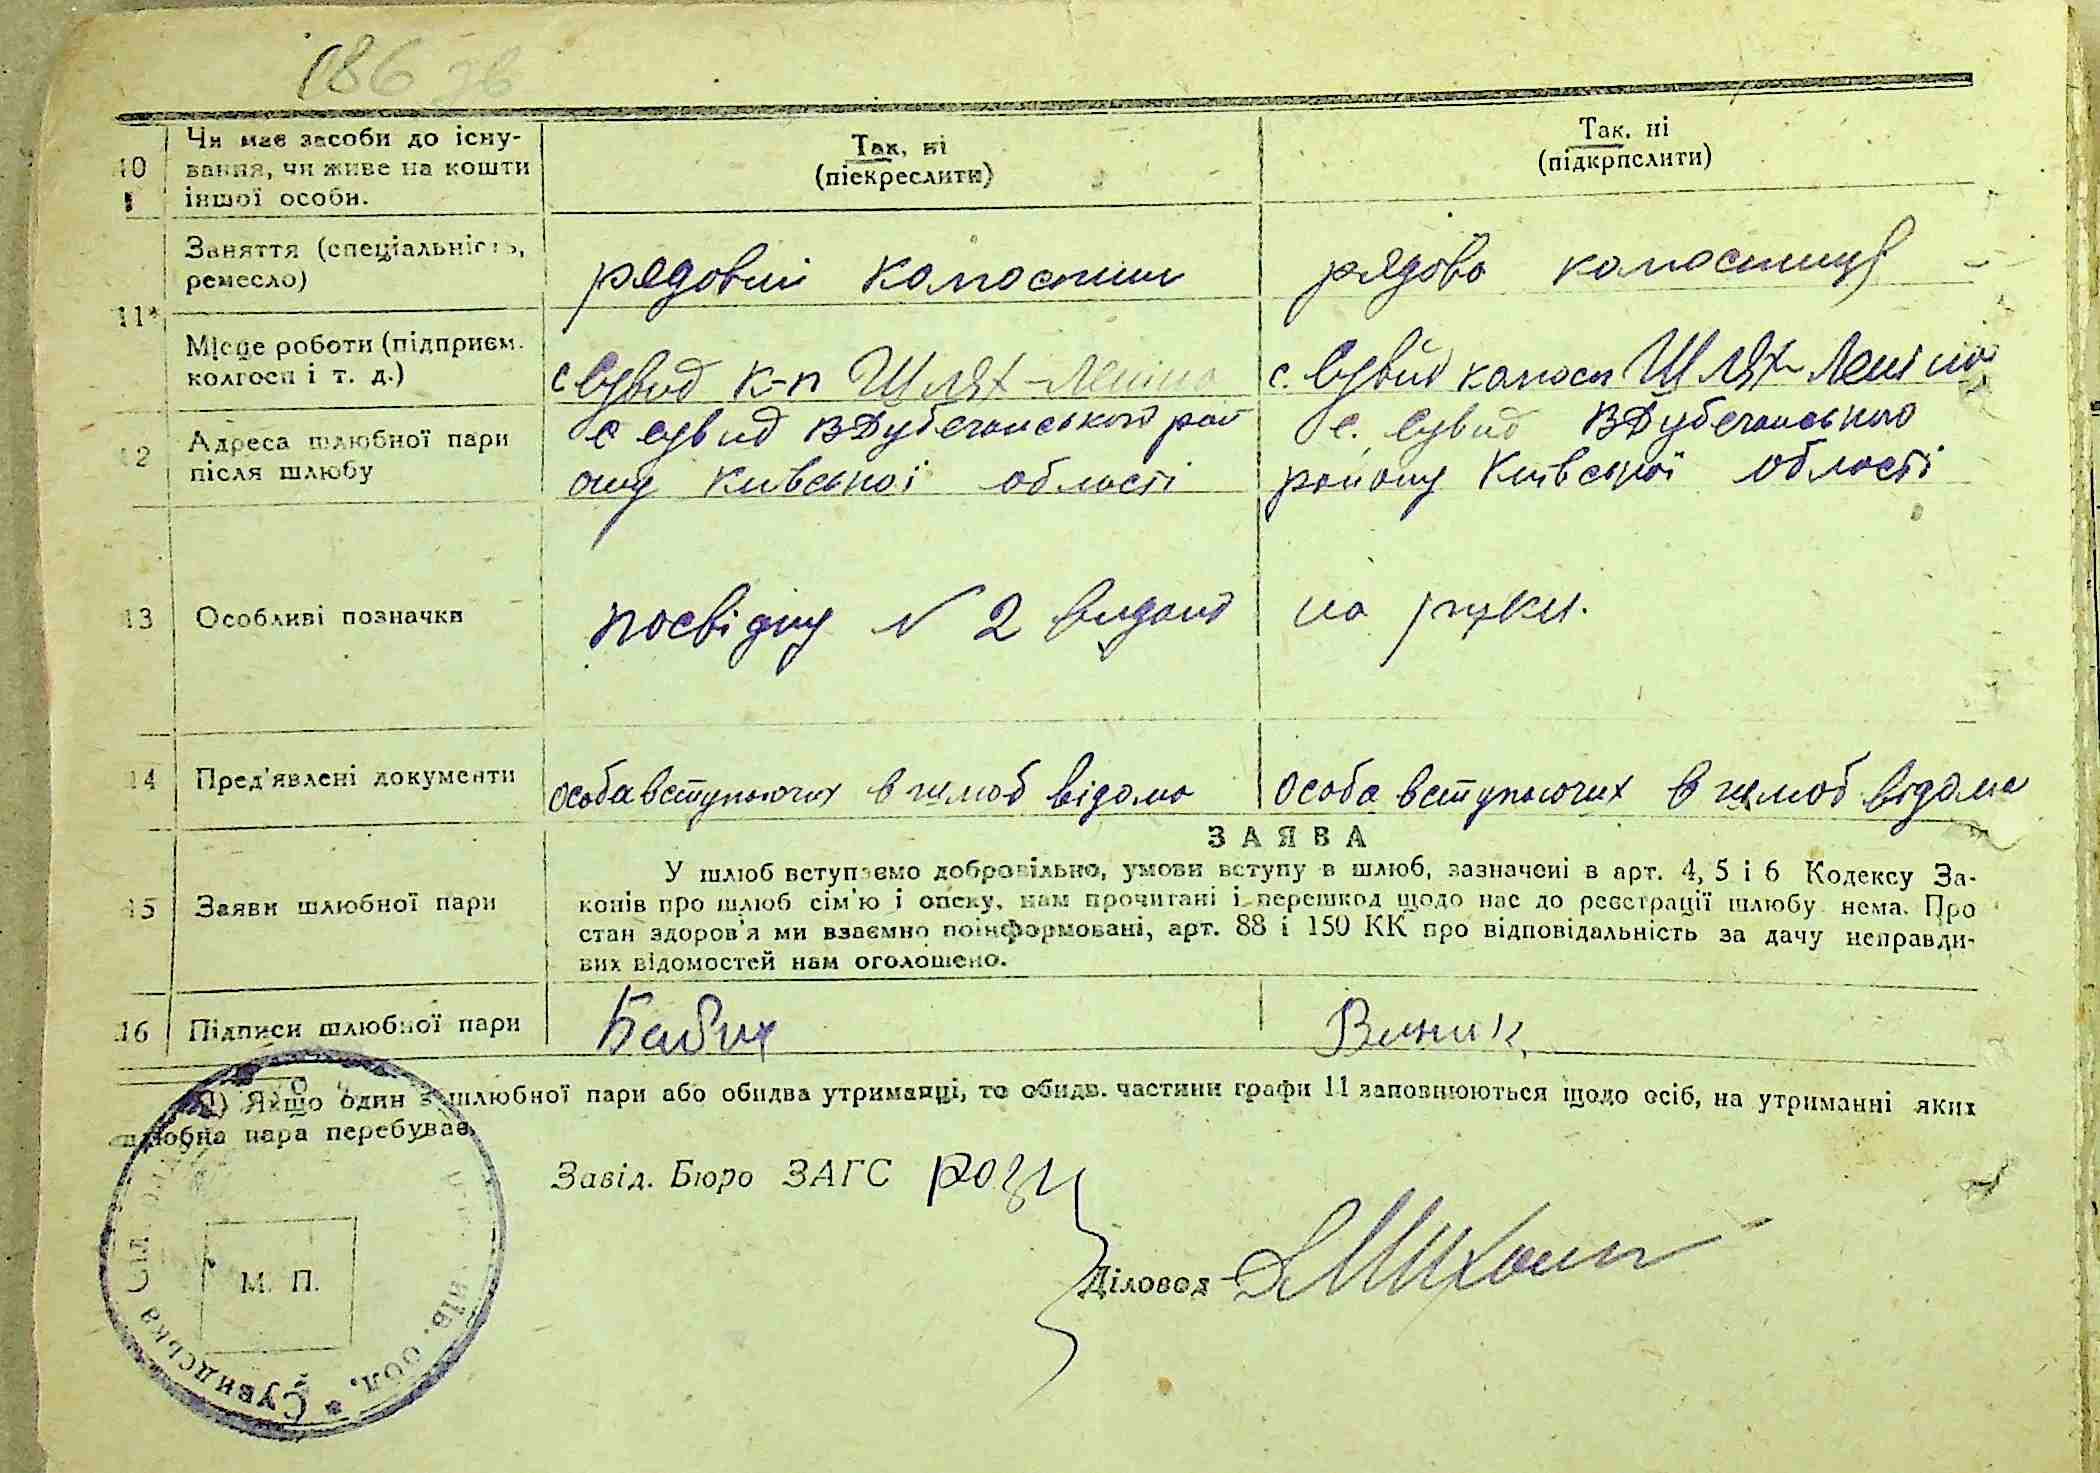 186 зв
10
Чи має засоби до існу-
вання, чи живе на кошти
іншої особи.
Так, ні
(піекреслити)
Так, ні
(підкрпслити)
11*
Заняття (спеціальність,
ремесло)
рядовий колоспник
рядова колоспниця
Місце роботи (підприєм.
колгосп і т. д.)
с Сувид к-п Шлях-Леніна
с. Сувид колгосп Шлях-Леніна
12
Адреса шлюбної пари
після шлюбу
с Сувид ВДубечанського рай
ону Київської області
с. Сувид ВДубечанського
району Київської області
13
Особливі позначки
посвідку № 2 видано на руки.
14
Пред'явлені документи
особа вступаючих в шлюб відома
особа вступаючих в шлюб відома
15
Заяви шлюбної пари
ЗАЯВА
У шлюб вступаємо добровільно, умови вступу в шлюб, зазначені в арт. 4, 5 і 6 Кодексу За-
конів про шлюб сім'ю і опеку, нам прочитані і перешкод щодо нас до реєстрації шлюбу нема. Про
стан здоров'я ми взаємно поінформовані, арт. 88 і 150 КК про відповідальність за дачу неправди-
вих відомостей нам оголошено.
16
Підписи шлюбної пари
Бабич
Виник
1) Якщо один з шлюбної пари або обидва утриманці, то обидв. частини графи 11 заповнюються щодо осіб, на утриманні яких
шлюбна пара перебуває.
Завід. Бюро ЗАГС
Діловод
М. П.
* Сувидська Сіл.
Київ. обл.